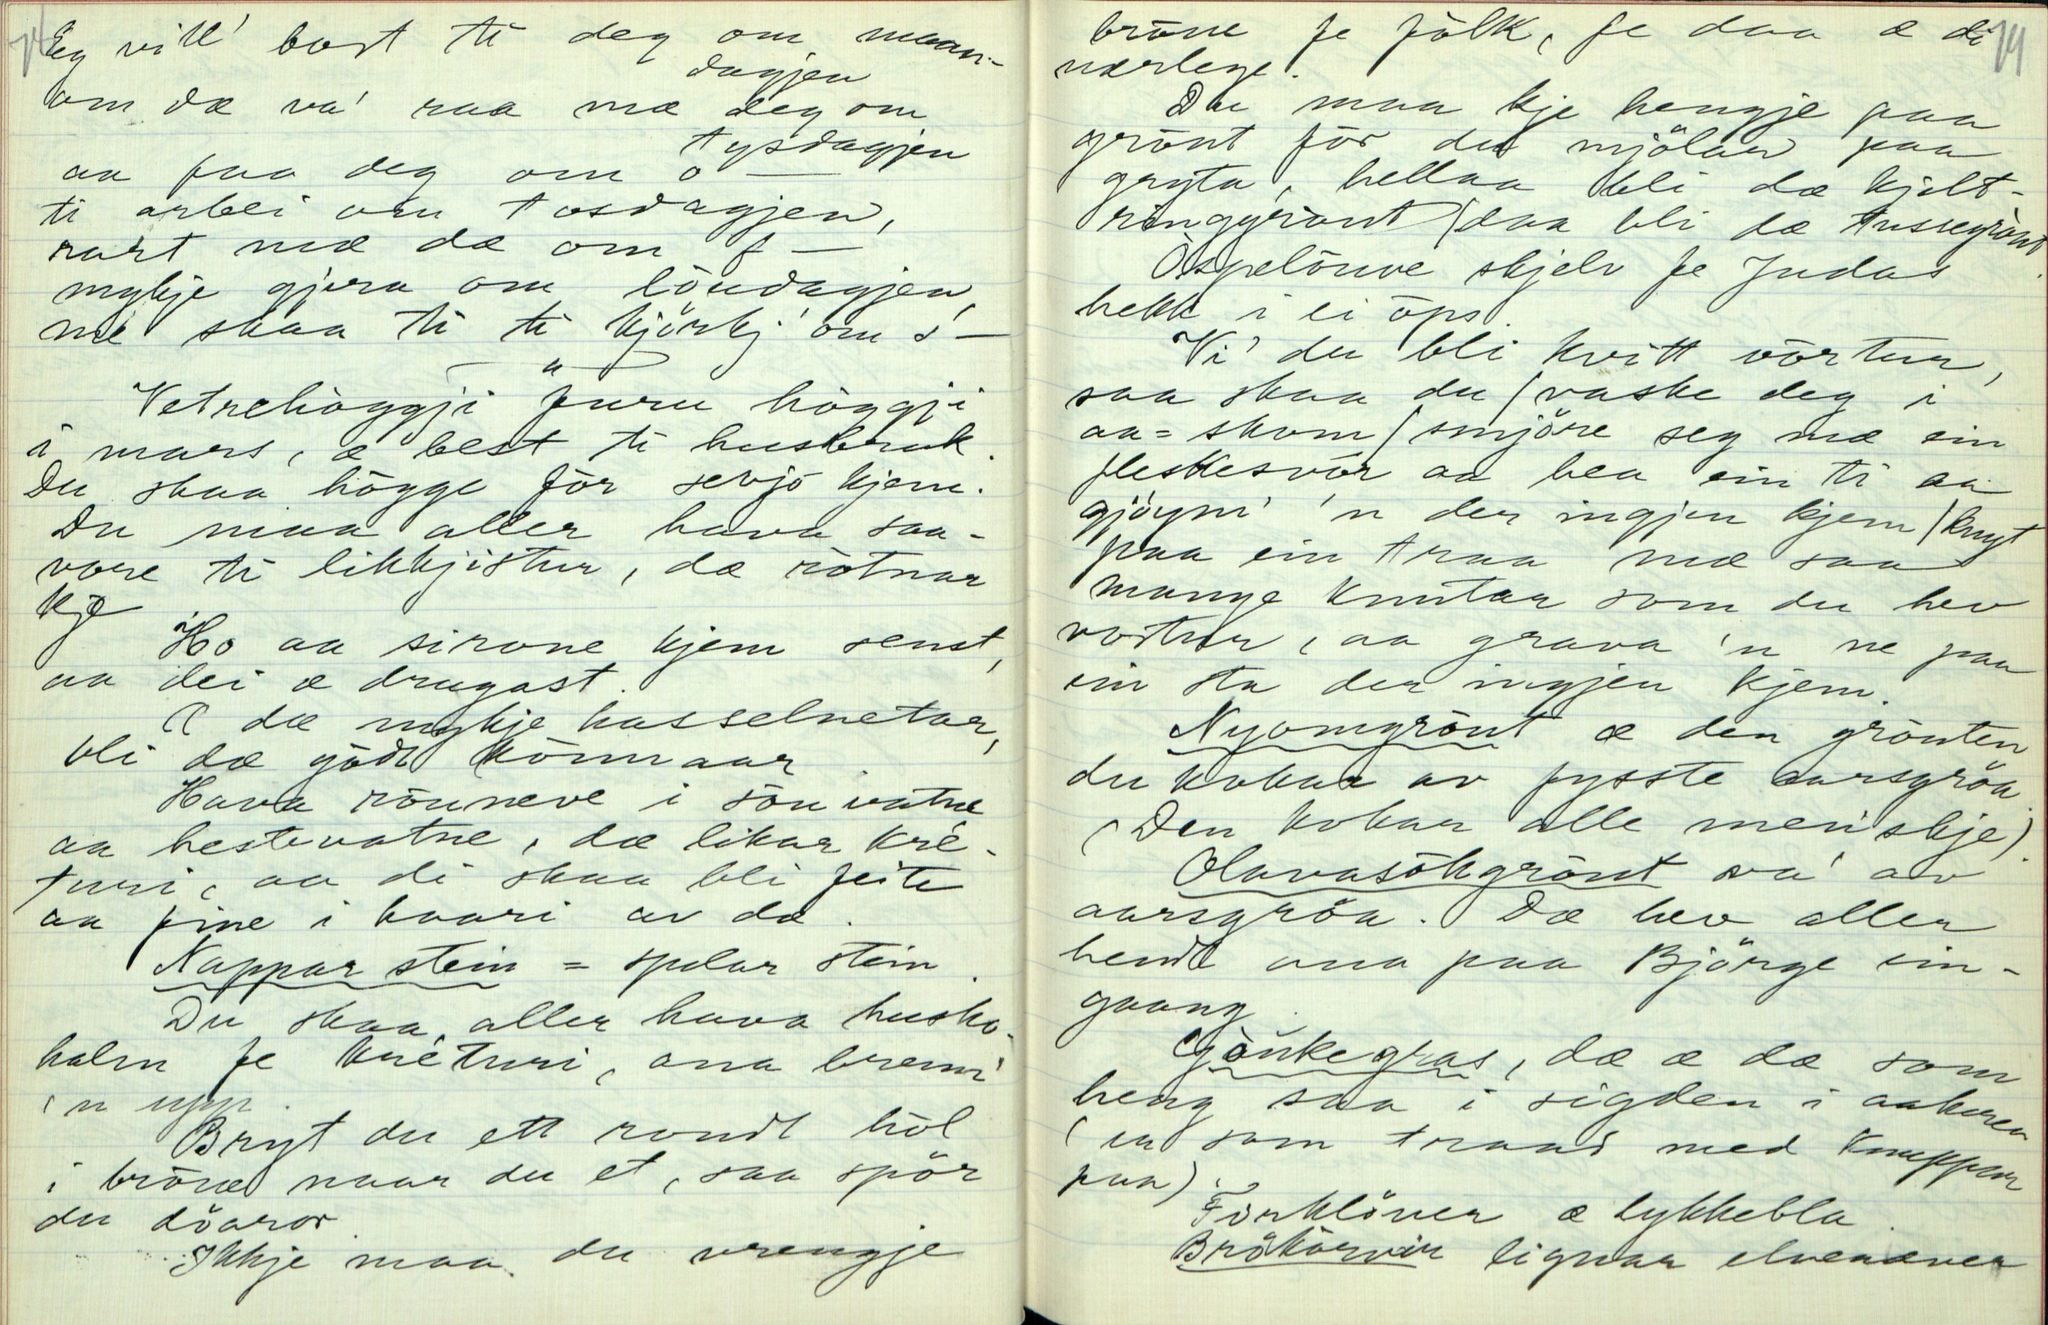 Eg vill' bort ti deg om maan-
dagjen
om dæ va' raa mæ deg om
tysdagjen
aa faa deg om o —
ti arbei om tosdagjen,
rart mæ dæ om f —
mykje gjera om löudagjen,
me skaa ti ti kjörkj' om s' —
— " —
Vetrehöggji furu höggji
i mars, æ best ti husbruk.
Du skaa högge för sevjo kjem.
Du maa aller hava saa-
vore ti likkjistur, dæ rötnar
kje
Ho aa sirone kjem senst,
aa dei æ drugast.
Æ dæ mykje hasselnetar,
bli dæ gödt könnaar
Hava röuneve i söuivatne
aa hestevatne, dæ likar kré-
turi, aa di skaa bli feite
aa fine i haari av dæ.
Nappar stein = spelar stein.
Du skaa aller hava husko-
halm fe kréturi, ona brenn'
'n upp.
Bryt du ett rondt höl
i bröue naar du et, saa spör
du döaror
Ikkje maa du vrengje
74
bröue fe fölk, fe daa æ di
nærlege.
Du maa kje hengje paa
grönt för du mjölar paa
gryta, hellaa bli dæ kjelt-
ringgröut (daa bli dæ tussegröut.
Ospelöuve skjelv fe Judas
hekk i ei öps.
Vi' du bli kvitt vörtur,
saa skaa du / vaske deg i
aa=skom / smjöre seg mæ ein
fleskesvör aa bea ein ti aa
gjöym' 'n der ingjen kjem / knyt
paa ein traa mæ saa
mange knutar som du hev
vortur, aa grava 'n ne paa
ein sta der ingjen kjem.
Nyomgröut æ den gröuten
du kokar av fysste aarsgröa.
(Den kokar alle menskje).
Olavasökgröut va' av
aarsgröa. Dæ hev aller
hendt ona paa Björge ein-
gaang.
Gjöukegras, dæ æ dæ som
heng saa i sigden i aakeren
( som traad med knuppar
paa).
Firklöver æ lykkebla.
Brökörvir lignar elvenever